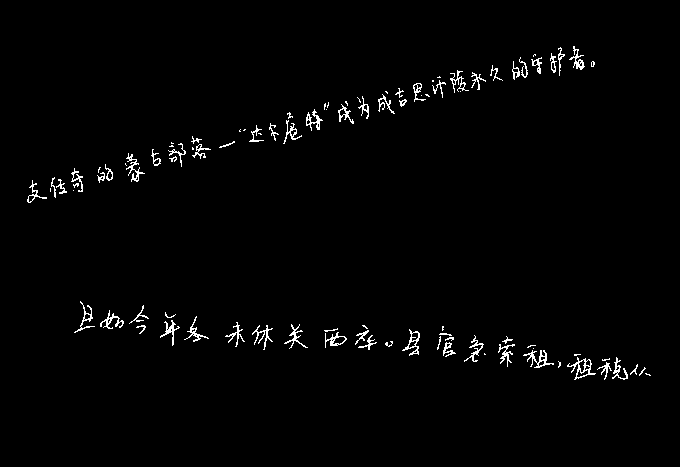 支传奇的蒙古部落—“达尔扈特”成为成吉思汗陵永久的守护者。
且如今年冬未休关西卒。县官急索租,租税从